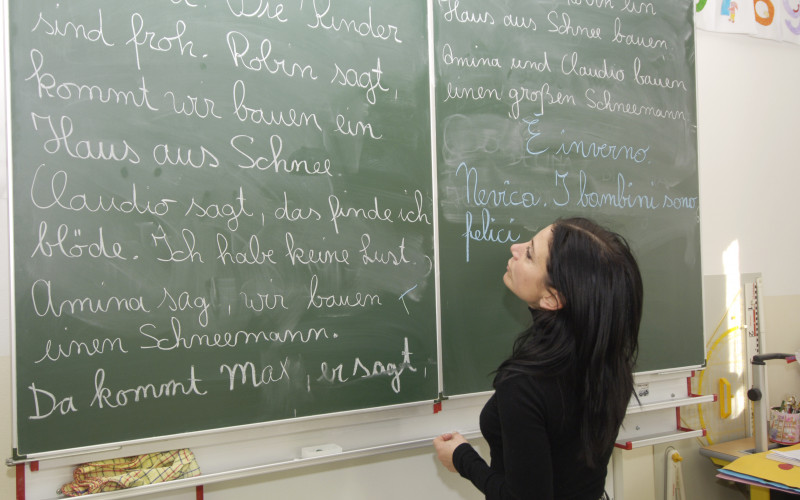 Die Kinder
sind froh. Robin sagt,
kommt wir bauen ein
Haus aus Schnee.
Claudio sagt, das finde ich
blöde. Ich habe keine Lust.
Amina sag, wir bauen
einen Schneemann.
Da kommt Max, er sagt,
Robin ein
Haus aus Schnee bauen.
Amina und Claudio bauen
einen großen Schneemann.
È inverno.
Nevica. I bambini sono
felici